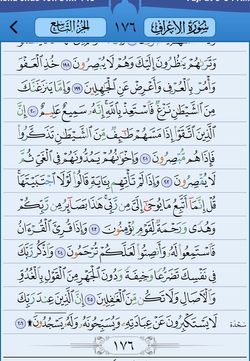 سُورَةُ الأَعْرَافِ ١٧٦ الجُزْءُ التَّاسِعُ
وَتَرَىٰهُمْ يَنظُرُونَ إِلَيْكَ وَهُمْ لَا يُبْصِرُونَ ١٩٨ خُذِ الْعَفْوَ
وَأْمُرْ بِالْعُرْفِ وَأَعْرِضْ عَنِ الْجَٰهِلِينَ ١٩٩ وَإِمَّا يَنزَغَنَّكَ
مِنَ الشَّيْطَٰنِ نَزْغٌ فَاسْتَعِذْ بِاللَّهِ إِنَّهُ سَمِيعٌ عَلِيمٌ ٢٠٠ إِنَّ
الَّذِينَ اتَّقَوْا إِذَا مَسَّهُمْ طَٰٓئِفٌ مِّنَ الشَّيْطَٰنِ تَذَكَّرُوا
فَإِذَا هُم مُّبْصِرُونَ ٢٠١ وَإِخْوَٰنُهُمْ يَمُدُّونَهُمْ فِي الْغَيِّ ثُمَّ
لَا يُقْصِرُونَ ٢٠٢ وَإِذَا لَمْ تَأْتِهِم بِـَٔايَةٍ قَالُوا لَوْلَا اجْتَبَيْتَهَا
قُلْ إِنَّمَا أَتَّبِعُ مَا يُوحَىٰ إِلَيَّ مِن رَّبِّي هَٰذَا بَصَائِرُ مِن رَّبِّكُمْ
وَهُدًى وَرَحْمَةٌ لِّقَوْمٍ يُؤْمِنُونَ ٢٠٣ وَإِذَا قُرِئَ الْقُرْءَانُ
فَاسْتَمِعُوا لَهُ وَأَنصِتُوا لَعَلَّكُمْ تُرْحَمُونَ ٢٠٤ وَاذْكُر رَّبَّكَ
فِي نَفْسِكَ تَضَرُّعًا وَخِيفَةً وَدُونَ الْجَهْرِ مِنَ الْقَوْلِ بِالْغُدُوِّ
وَالْءَاصَالِ وَلَا تَكُن مِّنَ الْغَٰفِلِينَ ٢٠٥ إِنَّ الَّذِينَ عِندَ رَبِّكَ
لَا يَسْتَكْبِرُونَ عَنْ عِبَادَتِهِ وَيُسَبِّحُونَهُ وَلَهُ يَسْجُدُونَ ۩ ٢٠٦ سَجْدَة
١٧٦